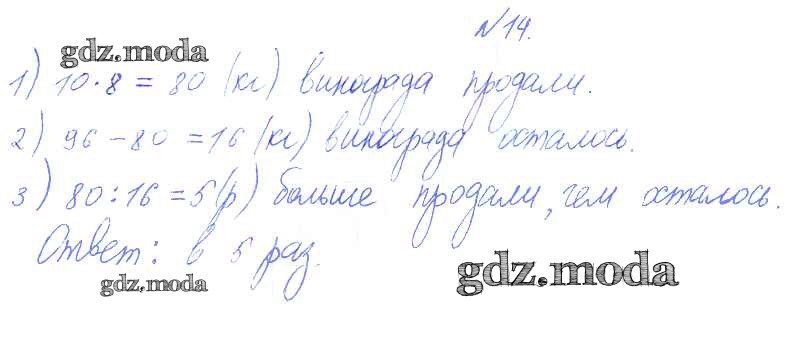 №14.
gdz.moda
1) 10·8 = 80 (кг) винограда продали.
2) 96 – 80 = 16 (кг) винограда осталось.
3) 80 : 16 = 5 (р) больше продали, чем осталось.
Ответ: в 5 раз.
gdz.moda
gdz.moda